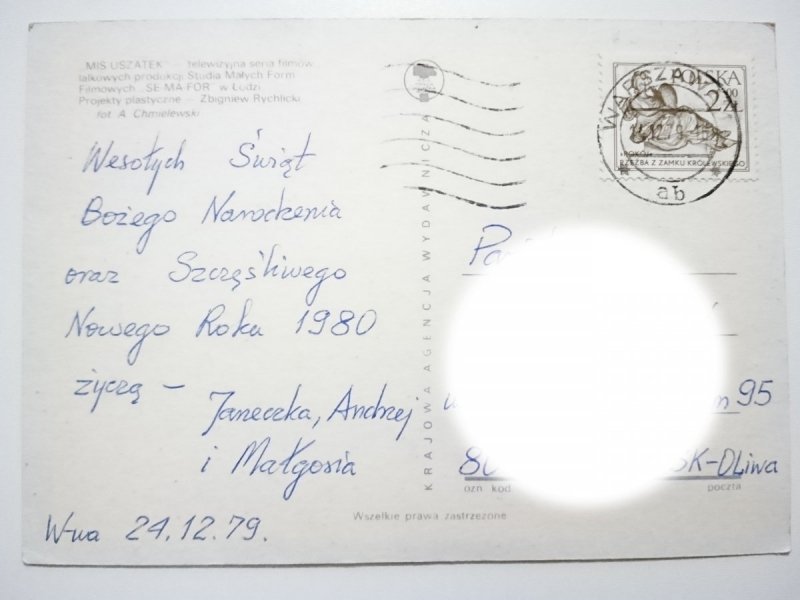 MIŚ USZATEK — telewizyjna seria filmów
lalkowych produkcji Studia Małych Form
Filmowych „SE-MA-FOR" w Łodzi
Projekty plastyczne — Zbigniew Rychlicki
fot A. Chmielewski
Wesołych Świąt
Bożego Narodzenia
oraz Szczęśliwego
Nowego Roku 1980
życzą —
Janeczka, Andrzej
i Małgosia
W-wa 24.12.79.
KRAJOWA AGENCJA WYDAWNICZA
Wszelkie prawa zastrzeżone
POLSKA
ZŁ
«POKÓJ»
RZEŹBA Z ZAMKU KRÓLEWSKIEGO
WARSZAWA
ab
95
SK-OLiwa
ozn kod
poczta